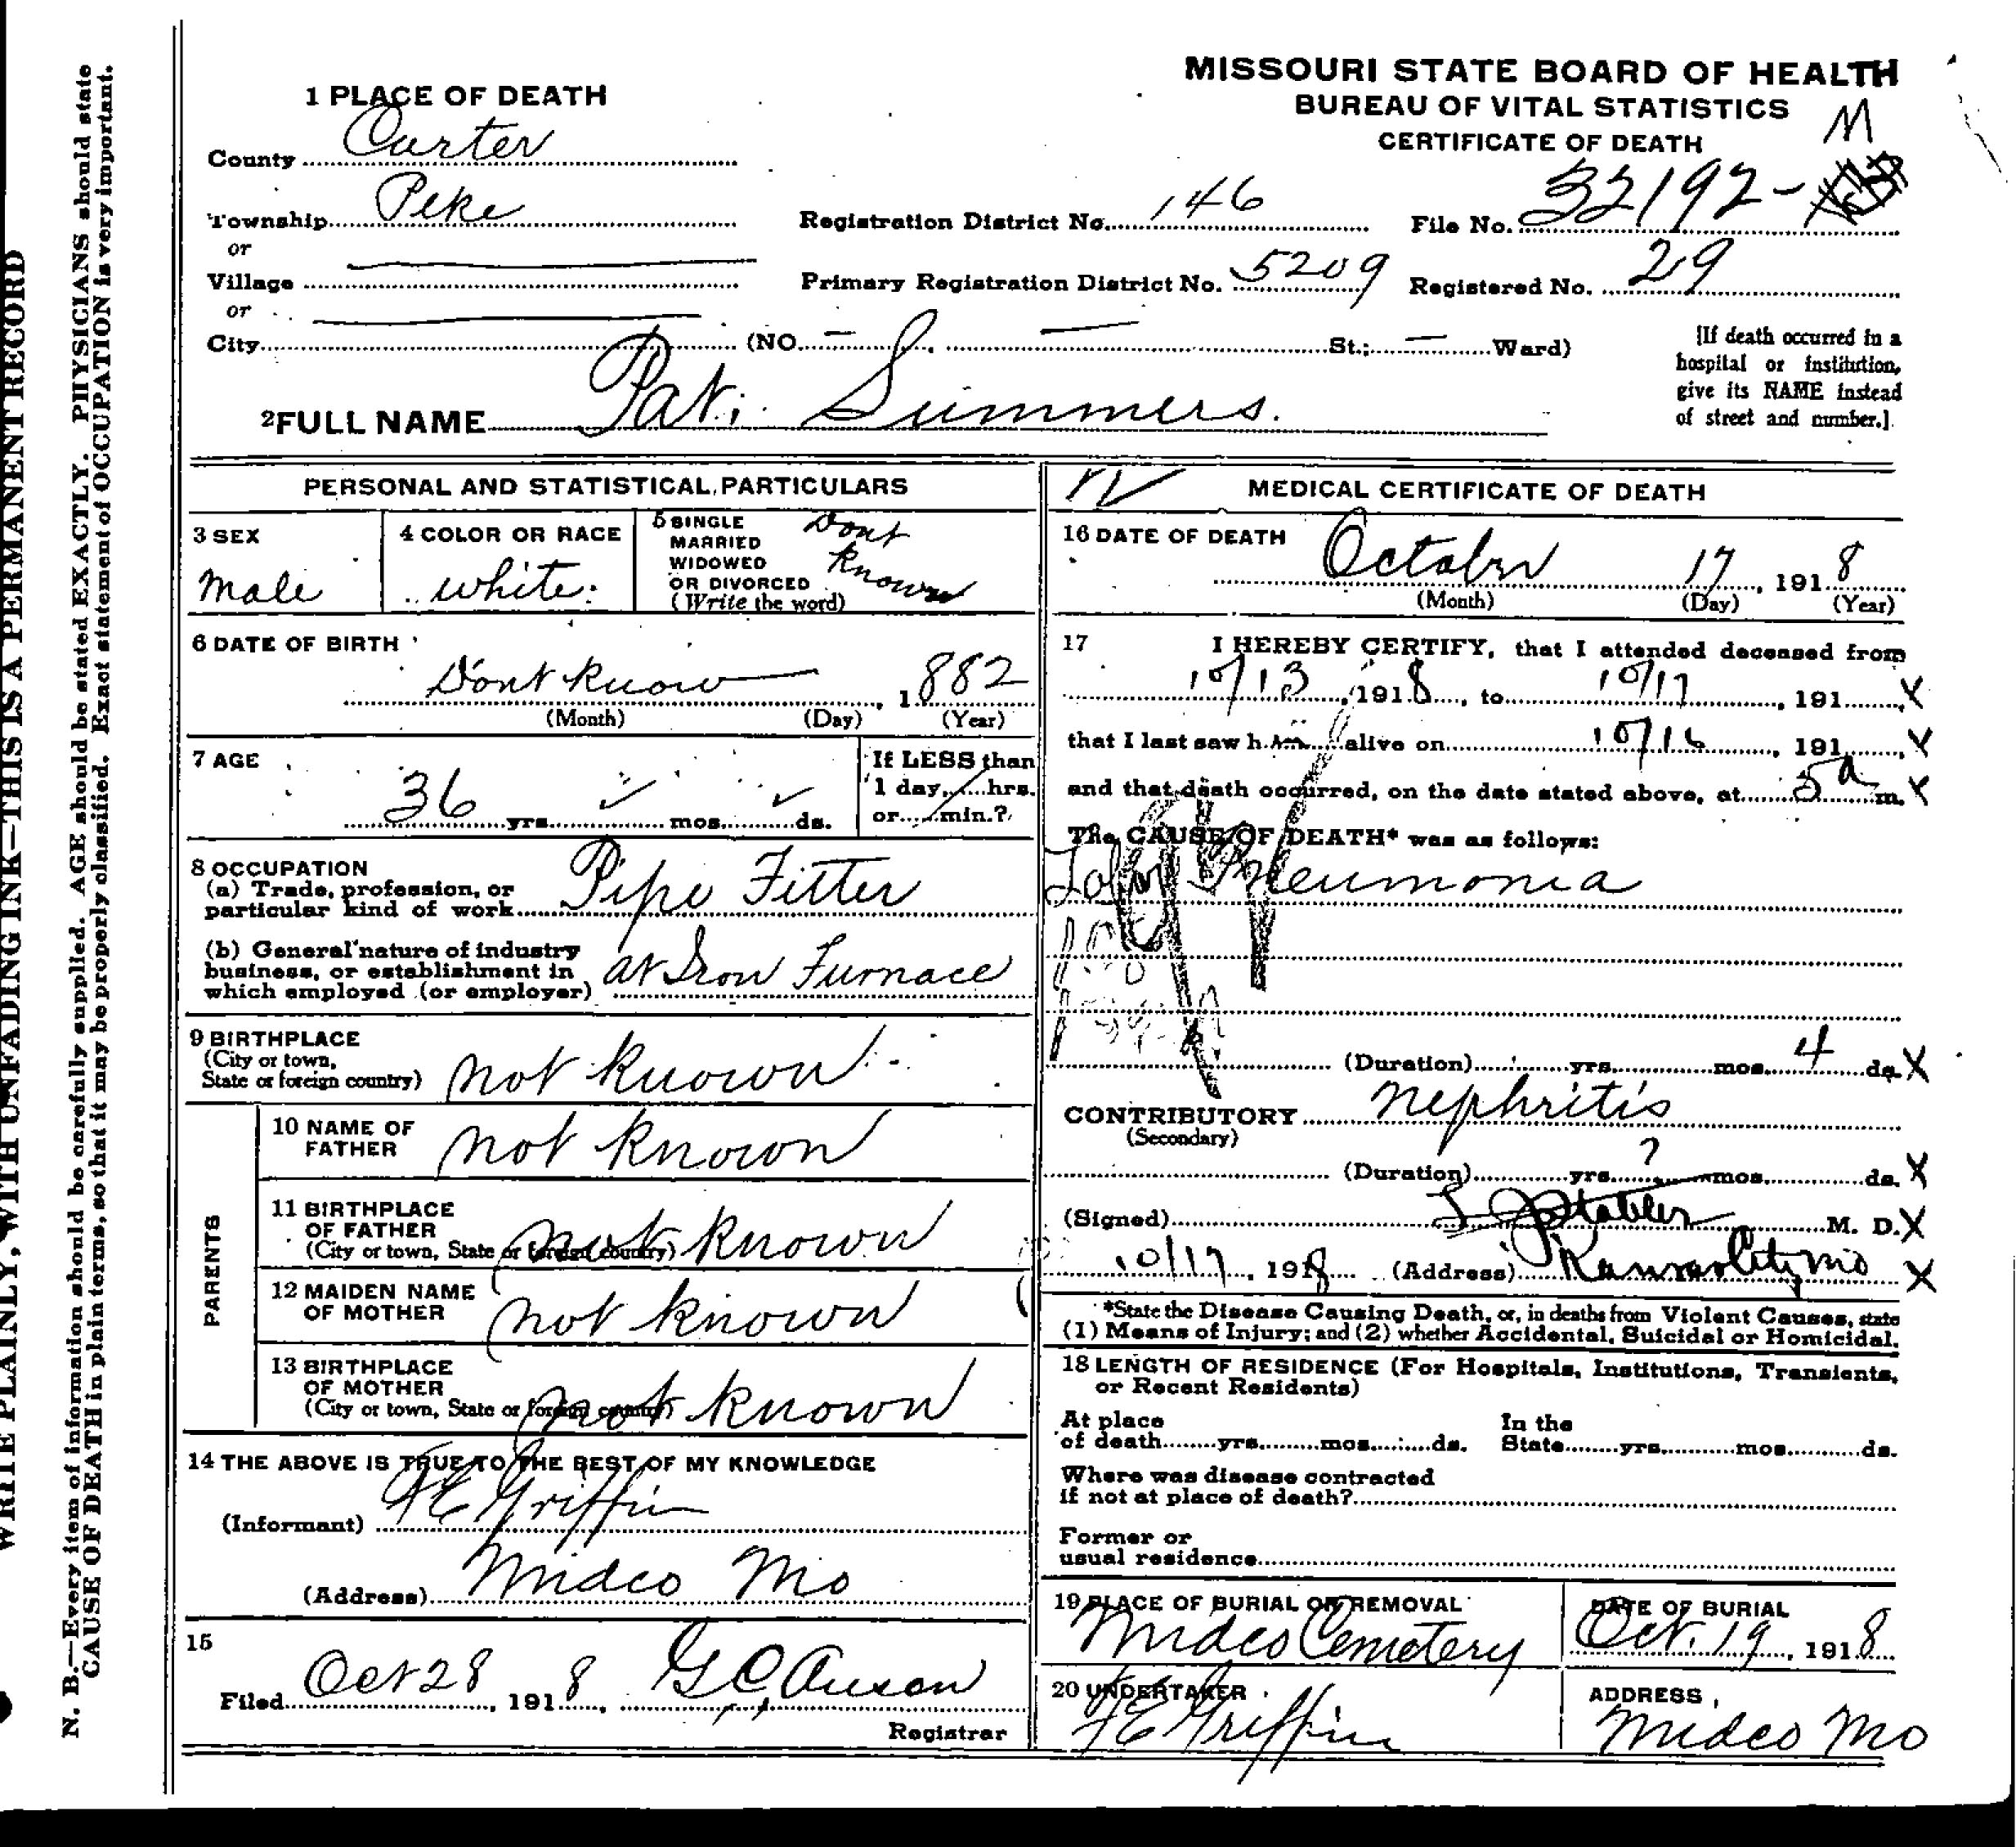 MISSOURI STATE BOARD OF HEALTH
BUREAU OF VITAL STATISTICS
CERTIFICATE OF DEATH
M
1 PLACE OF DEATH
County Carter
Township Pike
or
Village
or
City (NO. St.; Ward)
Registration District No. 146
File No. 32192-
Primary Registration District No. 5209
Registered No. 29
[If death occurred in a
hospital or institution,
give its NAME instead
of street and number.]
2 FULL NAME Pat. Summers.
PERSONAL AND STATISTICAL PARTICULARS
3 SEX
Male
4 COLOR OR RACE
white.
5 SINGLE
MARRIED
WIDOWED
OR DIVORCED
(Write the word)
Dont
Known
6 DATE OF BIRTH
Dont know, 1882
(Month) (Day) (Year)
7 AGE
36 yrs. mos. ds.
If LESS than
1 day, hrs.
or min.?
8 OCCUPATION
(a) Trade, profession, or
particular kind of work Pipe Fitter
(b) General nature of industry
business, or establishment in
which employed (or employer) at Iron Furnace
9 BIRTHPLACE
(City or town,
State or foreign country) not known
PARENTS
10 NAME OF
FATHER not known
11 BIRTHPLACE
OF FATHER
(City or town, State or foreign country) not known
12 MAIDEN NAME
OF MOTHER not known
13 BIRTHPLACE
OF MOTHER
(City or town, State or foreign country) not known
14 THE ABOVE IS TRUE TO THE BEST OF MY KNOWLEDGE
(Informant) F E Griffin
(Address) Midco Mo
15
Filed Oct 28, 1918, G C
Registrar
MEDICAL CERTIFICATE OF DEATH
16 DATE OF DEATH
October 17, 1918
(Month) (Day) (Year)
17 I HEREBY CERTIFY, that I attended deceased from
10/13, 1918, to 10/17, 191 X
that I last saw him alive on 10/16, 191 X
and that death occurred, on the date stated above, at 5 a m. X
The CAUSE OF DEATH* was as follows:
Lobar Pneumonia
(Duration) yrs. mos. 4 ds. X
CONTRIBUTORY nephritis
(Secondary)
(Duration) yrs. ? mos. ds. X
(Signed) Stabler M. D. X
10/17, 1918 (Address) Kansas City Mo X
*State the Disease Causing Death, or, in deaths from Violent Causes, state
(1) Means of Injury; and (2) whether Accidental, Suicidal or Homicidal.
18 LENGTH OF RESIDENCE (For Hospitals, Institutions, Transients,
or Recent Residents)
At place
of death yrs. mos. ds.
In the
State yrs. mos. ds.
Where was disease contracted
if not at place of death?
Former or
usual residence
19 PLACE OF BURIAL OR REMOVAL
Midco Cemetery
DATE OF BURIAL
Oct. 19, 1918
20 UNDERTAKER
F E Griffin
ADDRESS
Midco Mo
WRITE PLAINLY, WITH UNFADING INK—THIS IS A PERMANENT RECORD
N. B.—Every item of information should be carefully supplied. AGE should be stated EXACTLY. PHYSICIANS should state
CAUSE OF DEATH in plain terms, so that it may be properly classified. Exact statement of OCCUPATION is very important.